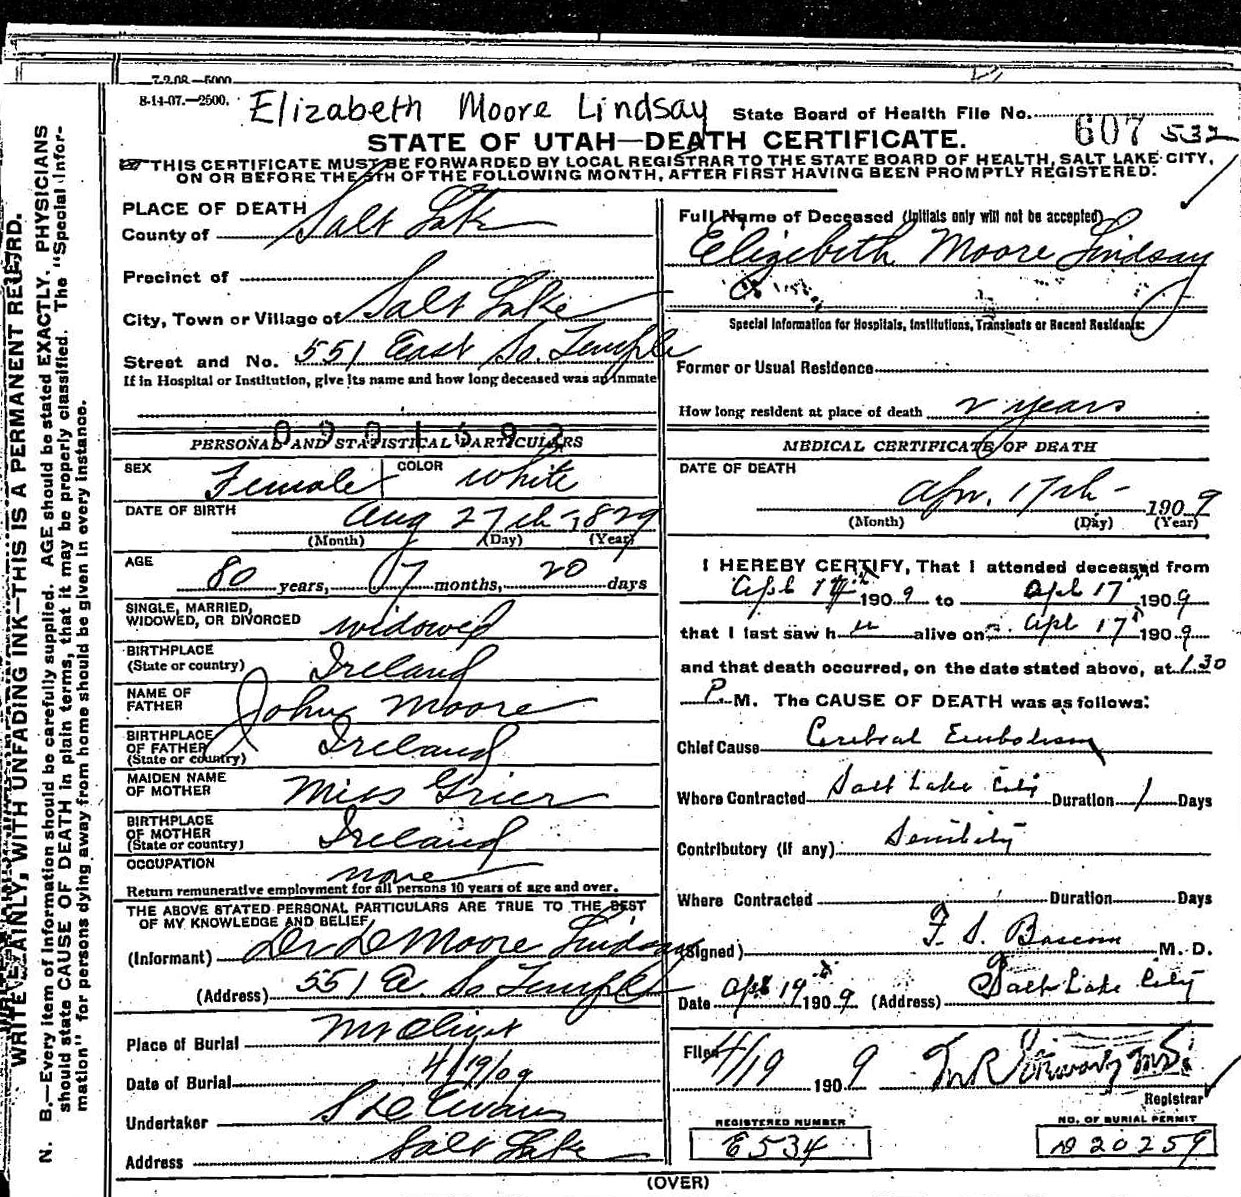 7-2-08.—5000.
8-14-07.—2500.
Elizabeth Moore Lindsay
State Board of Health File No. 607 532
STATE OF UTAH—DEATH CERTIFICATE.
THIS CERTIFICATE MUST BE FORWARDED BY LOCAL REGISTRAR TO THE STATE BOARD OF HEALTH, SALT LAKE CITY,
ON OR BEFORE THE 5TH OF THE FOLLOWING MONTH, AFTER FIRST HAVING BEEN PROMPTLY REGISTERED.
WRITE PLAINLY, WITH UNFADING INK—THIS IS A PERMANENT RECORD.
N. B.—Every item of information should be carefully supplied. AGE should be stated EXACTLY. PHYSICIANS
should state CAUSE OF DEATH in plain terms, that it may be properly classified. The "Special Infor-
mation" for persons dying away from home should be given in every instance.
PLACE OF DEATH
County of Salt Lake
Precinct of
City, Town or Village of Salt Lake
Street and No. 551 East So. Temple
If in Hospital or Institution, give its name and how long deceased was an inmate
0901592
PERSONAL AND STATISTICAL PARTICULARS
SEX Female COLOR White
DATE OF BIRTH Aug 27th 1829
(Month) (Day) (Year)
AGE 80 years, 07 months, 20 days
SINGLE, MARRIED,
WIDOWED, OR DIVORCED widowed
BIRTHPLACE
(State or country) Ireland
NAME OF
FATHER John Moore
BIRTHPLACE
OF FATHER
(State or country) Ireland
MAIDEN NAME
OF MOTHER Miss Grier
BIRTHPLACE
OF MOTHER
(State or country) Ireland
OCCUPATION none
Return remunerative employment for all persons 10 years of age and over.
THE ABOVE STATED PERSONAL PARTICULARS ARE TRUE TO THE BEST
OF MY KNOWLEDGE AND BELIEF
(Informant) Dr D Moore Lindsay
(Address) 551 E. So Temple
Place of Burial Mt Olivet
Date of Burial 4/19/09
Undertaker S D Evans
Address Salt Lake
Full Name of Deceased (Initials only will not be accepted)
Elizibeth Moore Lindsay
Special Information for Hospitals, Institutions, Transients or Recent Residents:
Former or Usual Residence
How long resident at place of death 2 years
MEDICAL CERTIFICATE OF DEATH
DATE OF DEATH
Apr. 17th - 1909
(Month) (Day) (Year)
I HEREBY CERTIFY, That I attended deceased from
Apl 190 9 to Apl 17th 190 9
that I last saw h er alive on Apl 17th 190 9
and that death occurred, on the date stated above, at 1.30
P. M. The CAUSE OF DEATH was as follows:
Chief Cause Cerebral Embolism
Where Contracted Salt Lake City Duration 1 Days
Contributory (if any) Senility
Where Contracted Duration Days
(Signed) F. S. Bascom M. D.
Date Apl 19th 190 9 (Address) Salt Lake City
Filed 4/19 190 9
Registrar
REGISTERED NUMBER
E534
NO. OF BURIAL PERMIT
20259
(OVER)